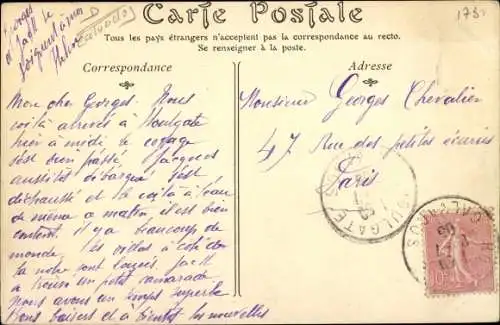 Carte Postale
Tous les pays étrangers n'acceptent pas la correspondance au recto.
Se renseigner à la poste.
Correspondance
Adresse
Mon cher Georges. Nous
voilà arrivés à Houlgate
hier à midi le voyage
s'est bien passé. Jacques
aussitôt débarqué s'est
déchaussé et le voilà à l'eau
de même ce matin, il est bien
content. il y a beaucoup de
monde. les
la notre sont loués. Jack a
trouvé un petit camarade
nous avons un temps superbe
Bons baisers et à bientôt les nouvelles
Monsieur Georges Chevalier
47 Rue des petites écuries
Paris
HOULGATE
CALVADOS
10
1731
Calvados